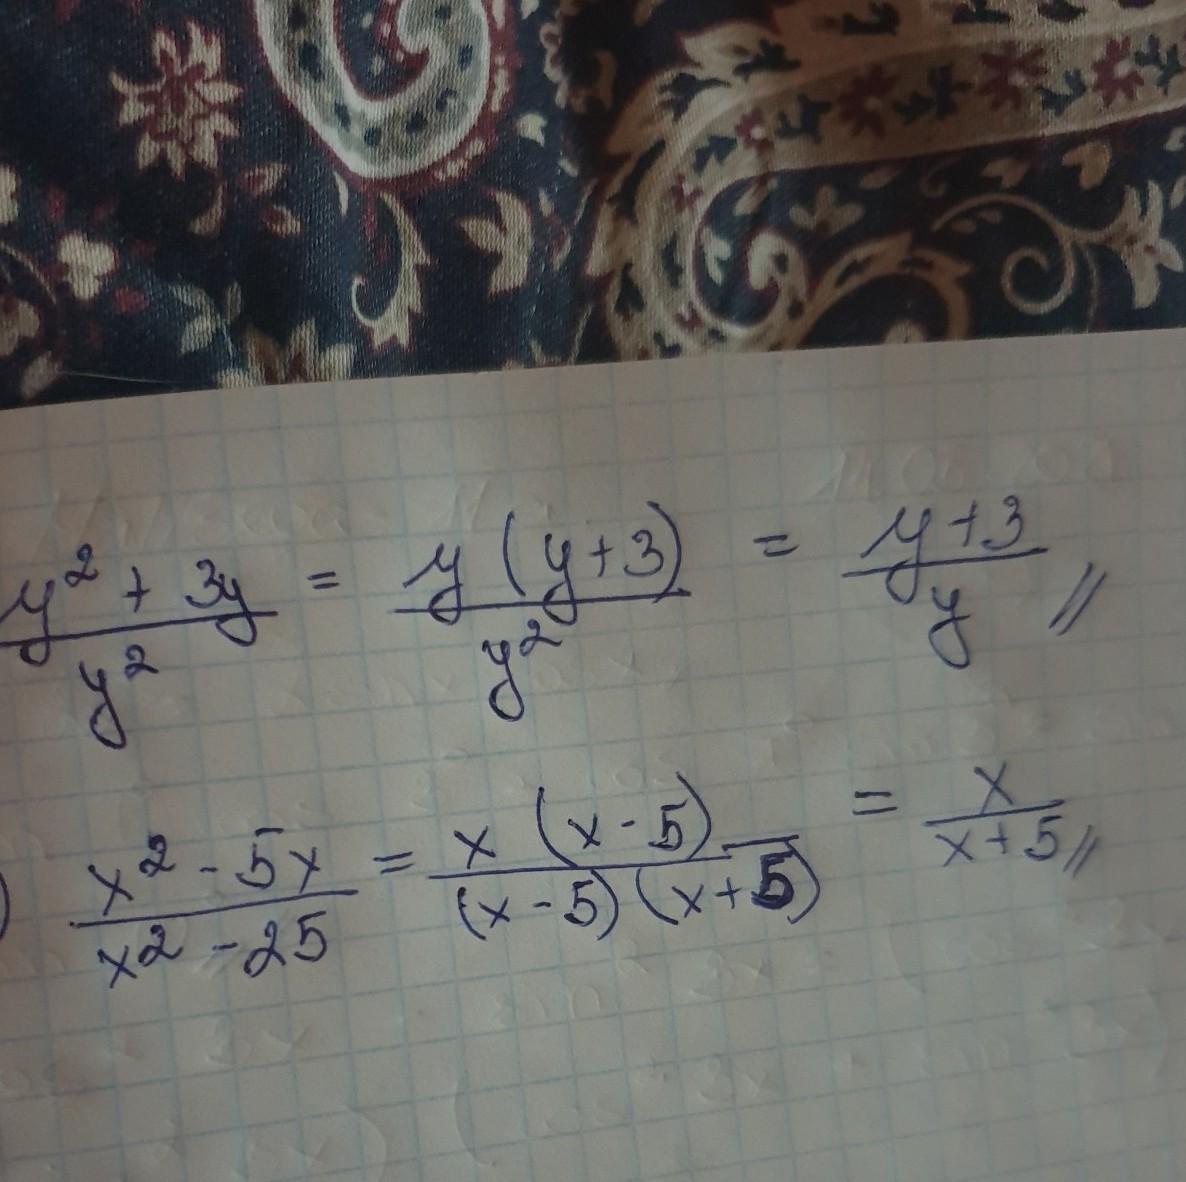 (y² + 3y)/y² = y (y+3)/y² = (y+3)/y //
) (x² - 5x)/(x² - 25) = x (x - 5)/((x - 5) (x + 5)) = x/(x + 5) //